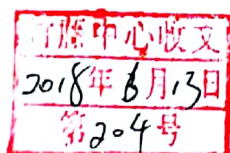 中心收文
2018年6月13日
第204号